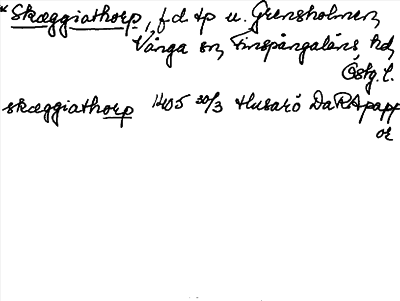 * Skæggiathorp, f d tp u. Grensholmen,
Vånga sn, Finspångaläns hd,
Östg. l.
skæggiathorp 1405 30/3 Husarö DaRA papp
or